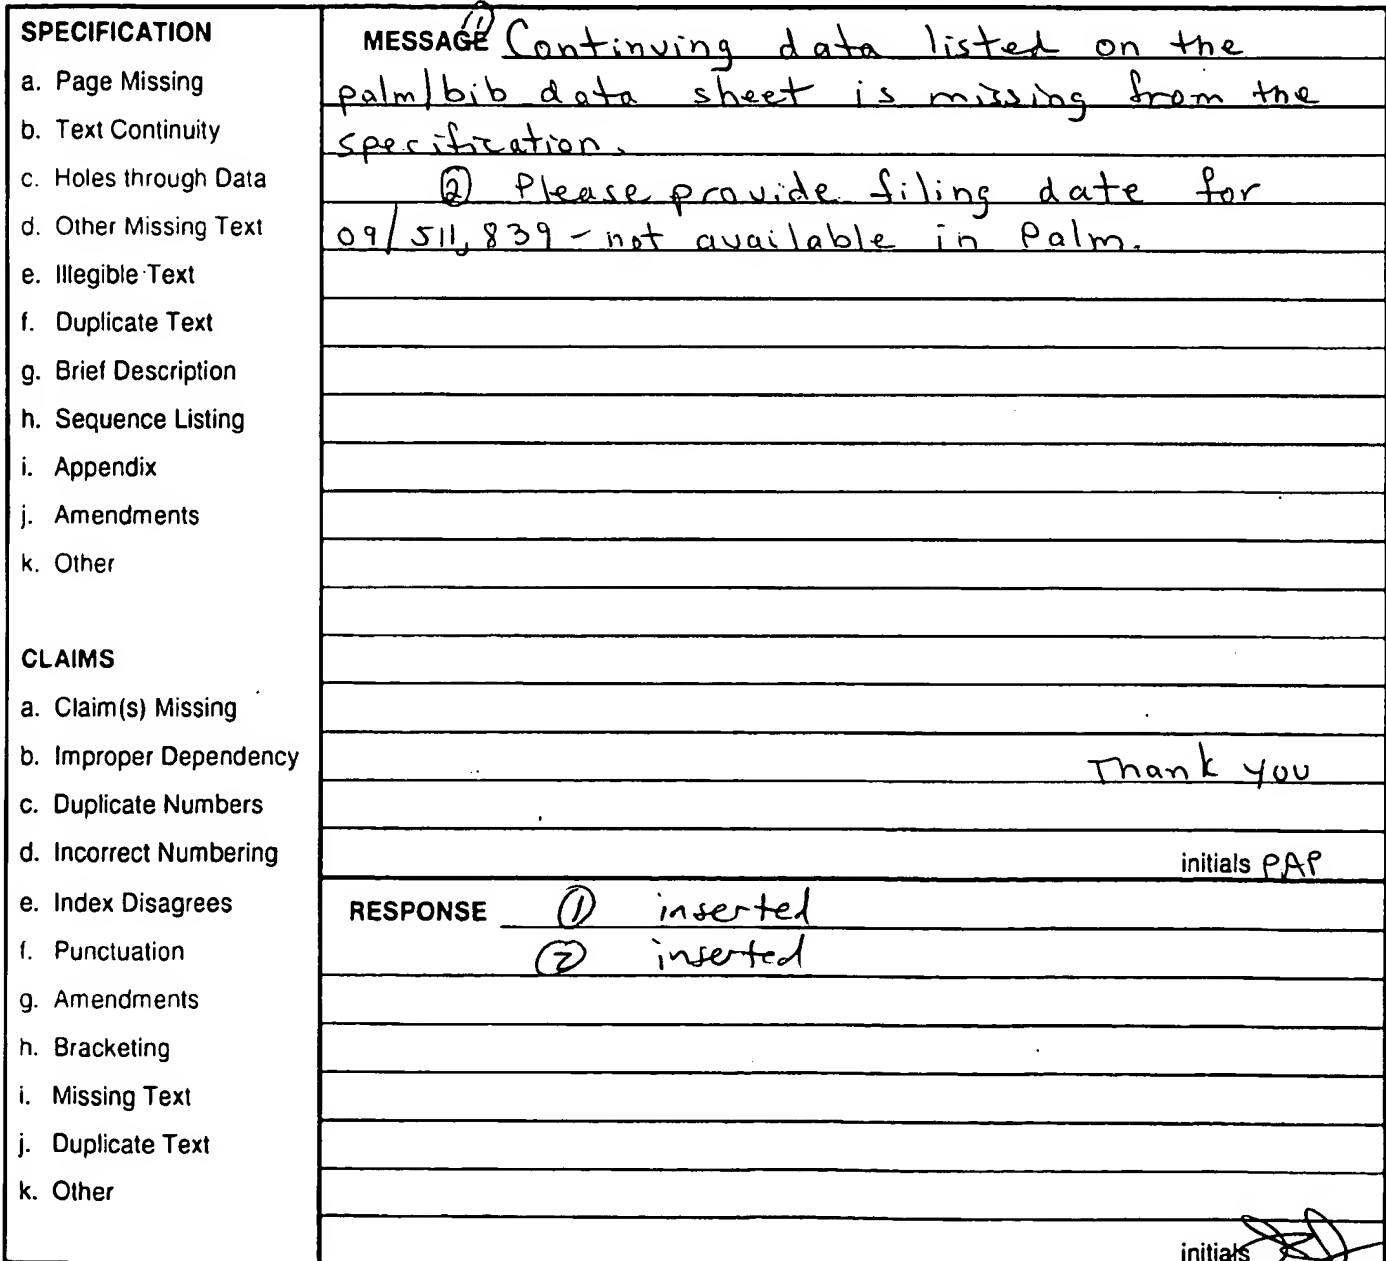 SPECIFICATION
a. Page Missing
b. Text Continuity
c. Holes through Data
d. Other Missing Text
e. Illegible Text
f. Duplicate Text
g. Brief Description
h. Sequence Listing
i. Appendix
j. Amendments
k. Other
CLAIMS
a. Claim(s) Missing
b. Improper Dependency
c. Duplicate Numbers
d. Incorrect Numbering
e. Index Disagrees
f. Punctuation
g. Amendments
h. Bracketing
i. Missing Text
j. Duplicate Text
k. Other
MESSAGE ① Continuing data listed on the
palm/bib data sheet is missing from the
specification.
② Please provide filing date for
09/511,839 - not available in Palm.
Thank you
initials PAP
RESPONSE ① inserted
② inserted
initials